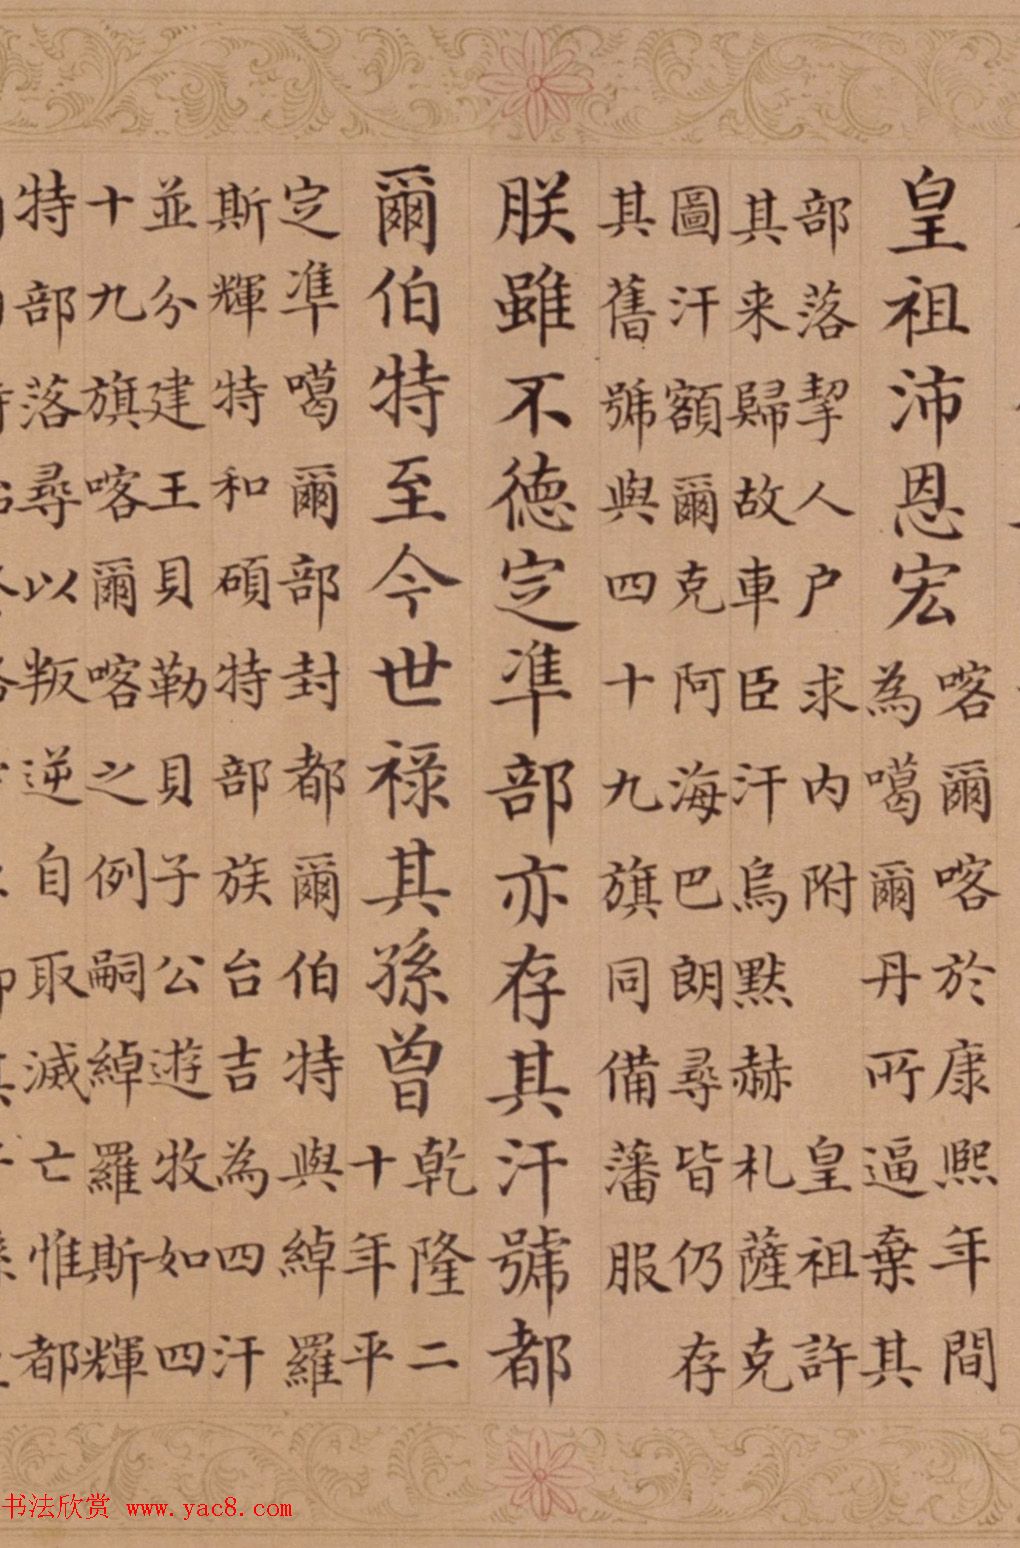 皇祖沛恩宏
喀爾喀於康熙年間
為噶爾丹所逼棄其
部落挈人户求内附 皇祖許
其来歸故車臣汗烏默赫札薩克
圖汗額爾克阿海巴朗尋皆仍存
其舊號與四十九旗同備藩服
朕雖不德定凖部亦存其汗號都
爾伯特至今世禄其孫曾
乾隆二
十年平
定凖噶爾部封都爾伯特與綽羅
斯輝特和碩特部族台吉為四汗
並分建王貝勒貝子公遊牧如四
十九旗喀爾喀之例嗣綽羅斯輝
特部落尋以叛逆自取滅亡惟都
书法欣赏 www.yac8.com